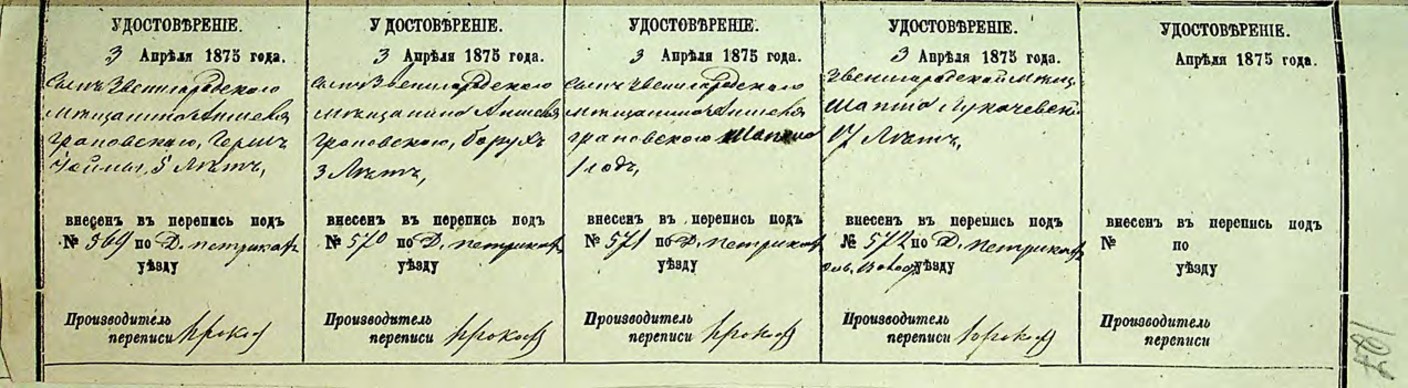 УДОСТОВѢРЕНІЕ.
3 Апрѣля 1875 года.
Сынъ Звенигородскаго
мѣщанина Аншеля
Грановскаго, Герш
5 Лѣтъ,
внесенъ въ перепись подъ
№ 569 по Д. Петриков
уѣзду
Производитель
переписи
УДОСТОВѢРЕНІЕ.
3 Апрѣля 1875 года.
Сынъ Звенигородскаго
мѣщанина Аншеля
Грановскаго, Борухъ
3 Лѣтъ,
внесенъ въ перепись подъ
№ 570 по Д. Петриков
уѣзду
Производитель
переписи
УДОСТОВѢРЕНІЕ.
3 Апрѣля 1875 года.
Сынъ Звенигородскаго
мѣщанина Аншеля
Грановскаго Шапшо
1 годъ,
внесенъ въ перепись подъ
№ 571 по Д. Петриков
уѣзду
Производитель
переписи
УДОСТОВѢРЕНІЕ.
3 Апрѣля 1875 года.
Звенигородской мѣщ
Шапшо Лукачевскі
17 Лѣтъ,
внесенъ въ перепись подъ
№ 572 по Д. Петриков
уѣзду
Производитель
переписи
УДОСТОВѢРЕНІЕ.
Апрѣля 1875 года.
внесенъ въ перепись подъ
№ по
уѣзду
Производитель
переписи